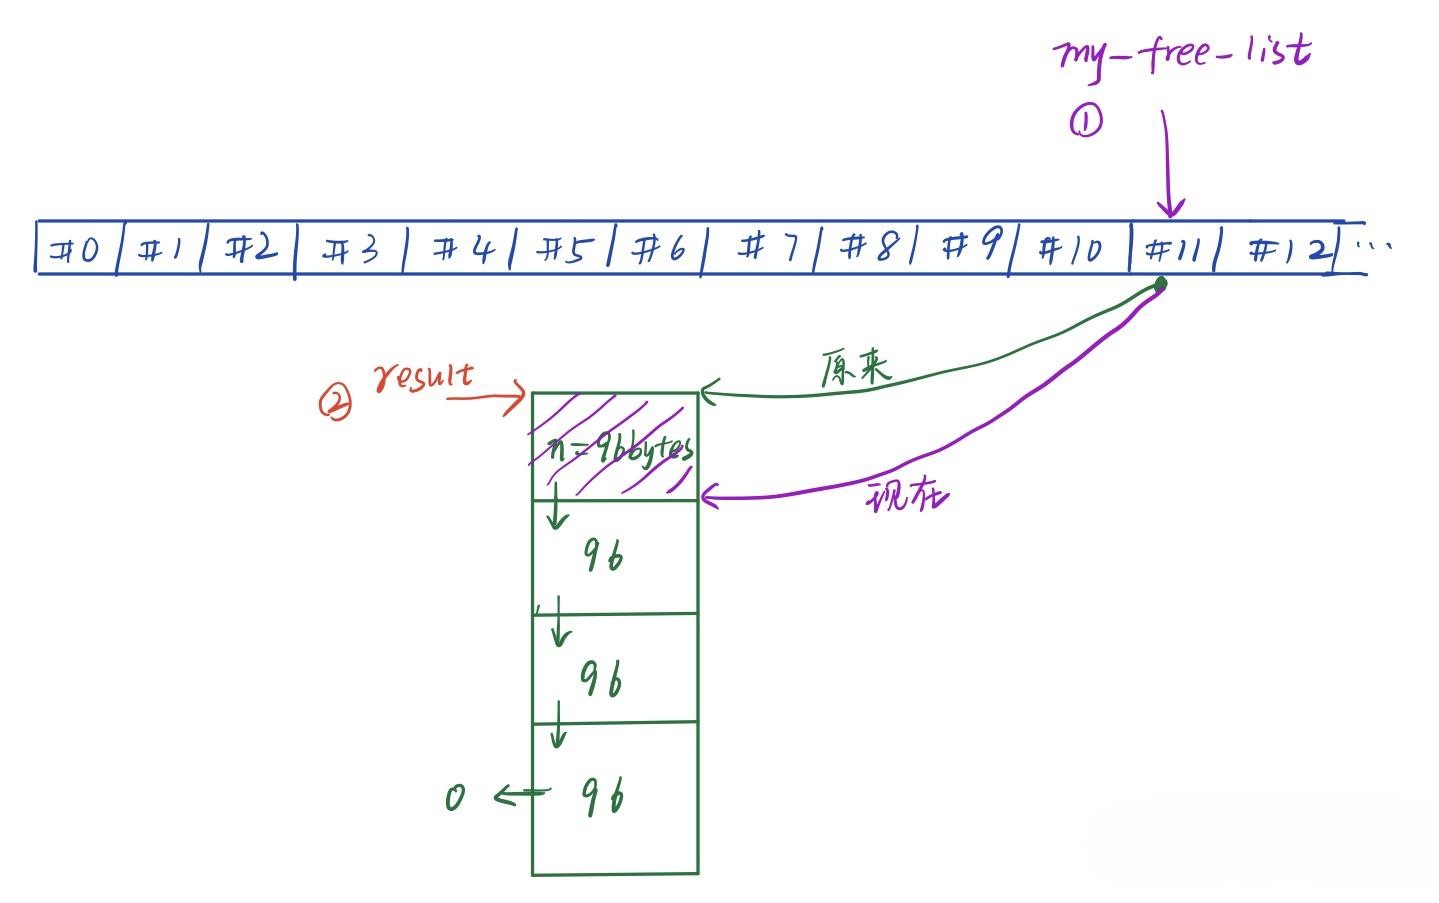 my_free_list
①
#0 #1 #2 #3 #4 #5 #6 #7 #8 #9 #10 #11 #12 ...
原来
② result
n=96bytes
现在
96
96
0
96